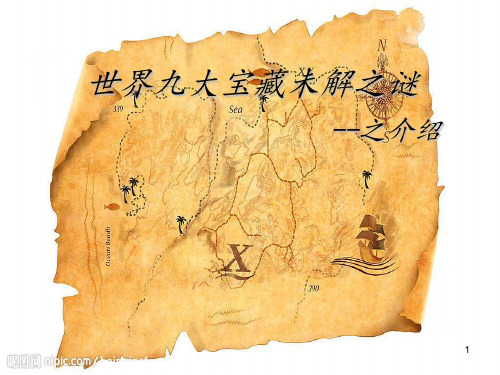 世界九大宝藏未解之谜
--之介绍
N
X
339
Sea
S
Ocean Booth
X
290
1
昵图网 nipic.com/